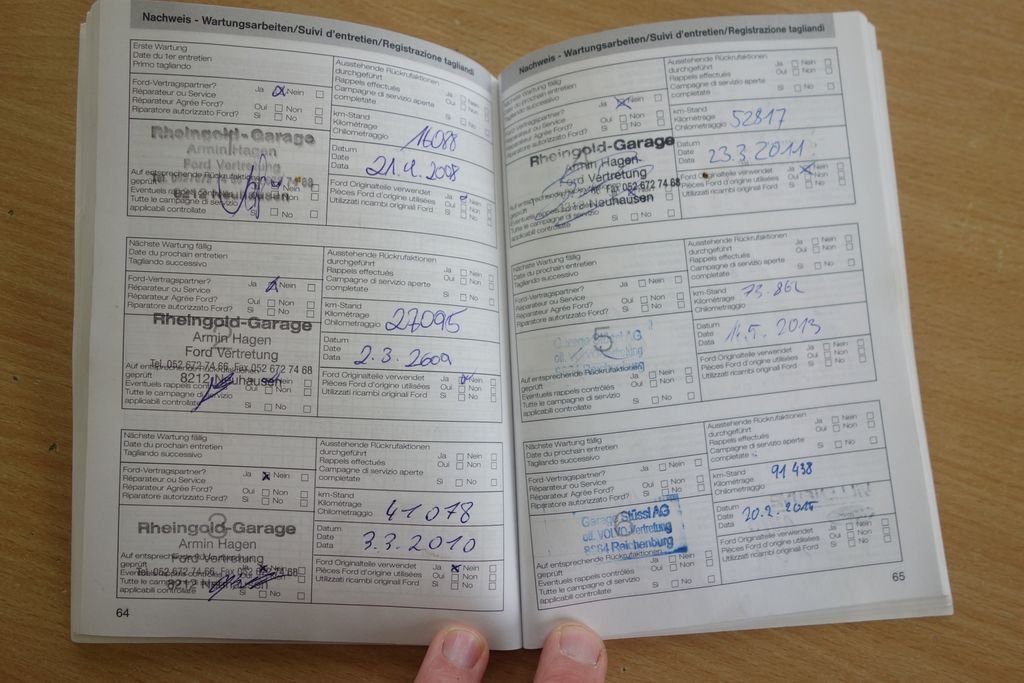 Nachweis - Wartungsarbeiten/Suivi d'entretien/Registrazione tagliandi
Erste Wartung
Date du 1er entretien
Primo tagliando
Ausstehende Rückrufaktionen
durchgeführt
Rappels effectués
Campagne di servizio aperte
completate
Ja Nein
Oui Non
Si No
Ford-Vertragspartner?
Réparateur ou Service
Réparateur Agrée Ford?
Riparatore autorizzato Ford?
Ja Nein
Oui Non
Si No
km-Stand
Kilométrage
Chilometraggio
16088
Rheingold-Garage
Armin Hagen
Ford Vertretung
8212 Neuhausen
Datum
Date
Data
21.4.2008
Auf entsprechende
geprüft
Eventuels rappels
Tutte le campagne di servizio
applicabili controllate
Nein
Non
Si No
Ford Originalteile verwendet
Pièces Ford d'origine utilisées
Utilizzati ricambi original Ford
Ja Nein
Oui Non
Si No
Nächste Wartung fällig
Date du prochain entretien
Tagliando successivo
Ausstehende Rückrufaktionen
durchgeführt
Rappels effectués
Campagne di servizio aperte
completate
Ja Nein
Oui Non
Si No
Ford-Vertragspartner?
Réparateur ou Service
Réparateur Agrée Ford?
Riparatore autorizzato Ford?
Ja Nein
Oui Non
Si No
km-Stand
Kilométrage
Chilometraggio
27095
Rheingold-Garage
Armin Hagen
Ford Vertretung
Tel. 052 672 74 66 Fax 052 672 74 68
8212 Neuhausen
Datum
Date
Data
2.3.2009
geprüft
Eventuels rappels
Tutte le campagne di servizio
applicabili controllate
Nein
Non
Si No
Ford Originalteile verwendet
Pièces Ford d'origine utilisées
Utilizzati ricambi original Ford
Ja Nein
Oui Non
Si No
Nächste Wartung fällig
Date du prochain entretien
Tagliando successivo
Ausstehende Rückrufaktionen
durchgeführt
Rappels effectués
Campagne di servizio aperte
completate
Ja Nein
Oui Non
Si No
Ford-Vertragspartner?
Réparateur ou Service
Réparateur Agrée Ford?
Riparatore autorizzato Ford?
Ja Nein
Oui Non
Si No
km-Stand
Kilométrage
Chilometraggio
41078
3
Rheingold-Garage
Armin Hagen
Ford Vertretung
Tel. 052 672 74 66 Fax 052 672 74 68
8212 Neuhausen
Datum
Date
Data
3.3.2010
geprüft
Eventuels rappels
Tutte le campagne di servizio
applicabili controllate
Si No
Ford Originalteile verwendet
Pièces Ford d'origine utilisées
Utilizzati ricambi original Ford
Ja Nein
Oui Non
Si No
64
Nachweis - Wartungsarbeiten/Suivi d'entretien/Registrazione tagliandi
Nächste Wartung fällig
Date du prochain entretien
Tagliando successivo
Ausstehende Rückrufaktionen
durchgeführt
Rappels effectués
Campagne di servizio aperte
completate
Ja Nein
Oui Non
Si No
Ford-Vertragspartner?
Réparateur ou Service
Réparateur Agrée Ford?
Riparatore autorizzato Ford?
Ja Nein
Oui Non
Si No
km-Stand
Kilométrage
Chilometraggio
52817
Rheingold-Garage
Armin Hagen
Ford Vertretung
Fax 052 672 74 68
8212 Neuhausen
Datum
Date
Data
23.3.2011
geprüft
Eventuels rappels
Tutte le campagne di servizio
applicabili controllate
Si No
Ford Originalteile verwendet
Pièces Ford d'origine utilisées
Utilizzati ricambi original Ford
Ja Nein
Oui Non
Si No
Nächste Wartung fällig
Date du prochain entretien
Tagliando successivo
Ausstehende Rückrufaktionen
durchgeführt
Rappels effectués
Campagne di servizio aperte
completate
Ja Nein
Oui Non
Si No
Ford-Vertragspartner?
Réparateur ou Service
Réparateur Agrée Ford?
Riparatore autorizzato Ford?
Ja Nein
Oui Non
Si No
km-Stand
Kilométrage
Chilometraggio
5
Garage Stüssi AG
Datum
Date
Data
2013
Auf entsprechende Rückrufaktionen
geprüft
Eventuels rappels contrôlés
Tutte le campagne di servizio
applicabili controllate
Ja Nein
Oui Non
Si No
Ford Originalteile verwendet
Pièces Ford d'origine utilisées
Utilizzati ricambi original Ford
Ja Nein
Oui Non
Si No
Nächste Wartung fällig
Date du prochain entretien
Tagliando successivo
Ausstehende Rückrufaktionen
durchgeführt
Rappels effectués
Campagne di servizio aperte
completate
Ja Nein
Oui Non
Si No
Ford-Vertragspartner?
Réparateur ou Service
Réparateur Agrée Ford?
Riparatore autorizzato Ford?
Ja Nein
Oui Non
Si No
km-Stand
Kilométrage
Chilometraggio
91438
Garage Stüssi AG
off. VOLVO Vertretung
8864 Reichenburg
Datum
Date
Data
Auf entsprechende Rückrufaktionen
geprüft
Eventuels rappels contrôlés
Tutte le campagne di servizio
applicabili controllate
Ja Nein
Oui Non
Si No
Ford Originalteile verwendet
Pièces Ford d'origine utilisées
Utilizzati ricambi original Ford
Ja Nein
Oui Non
Si No
65